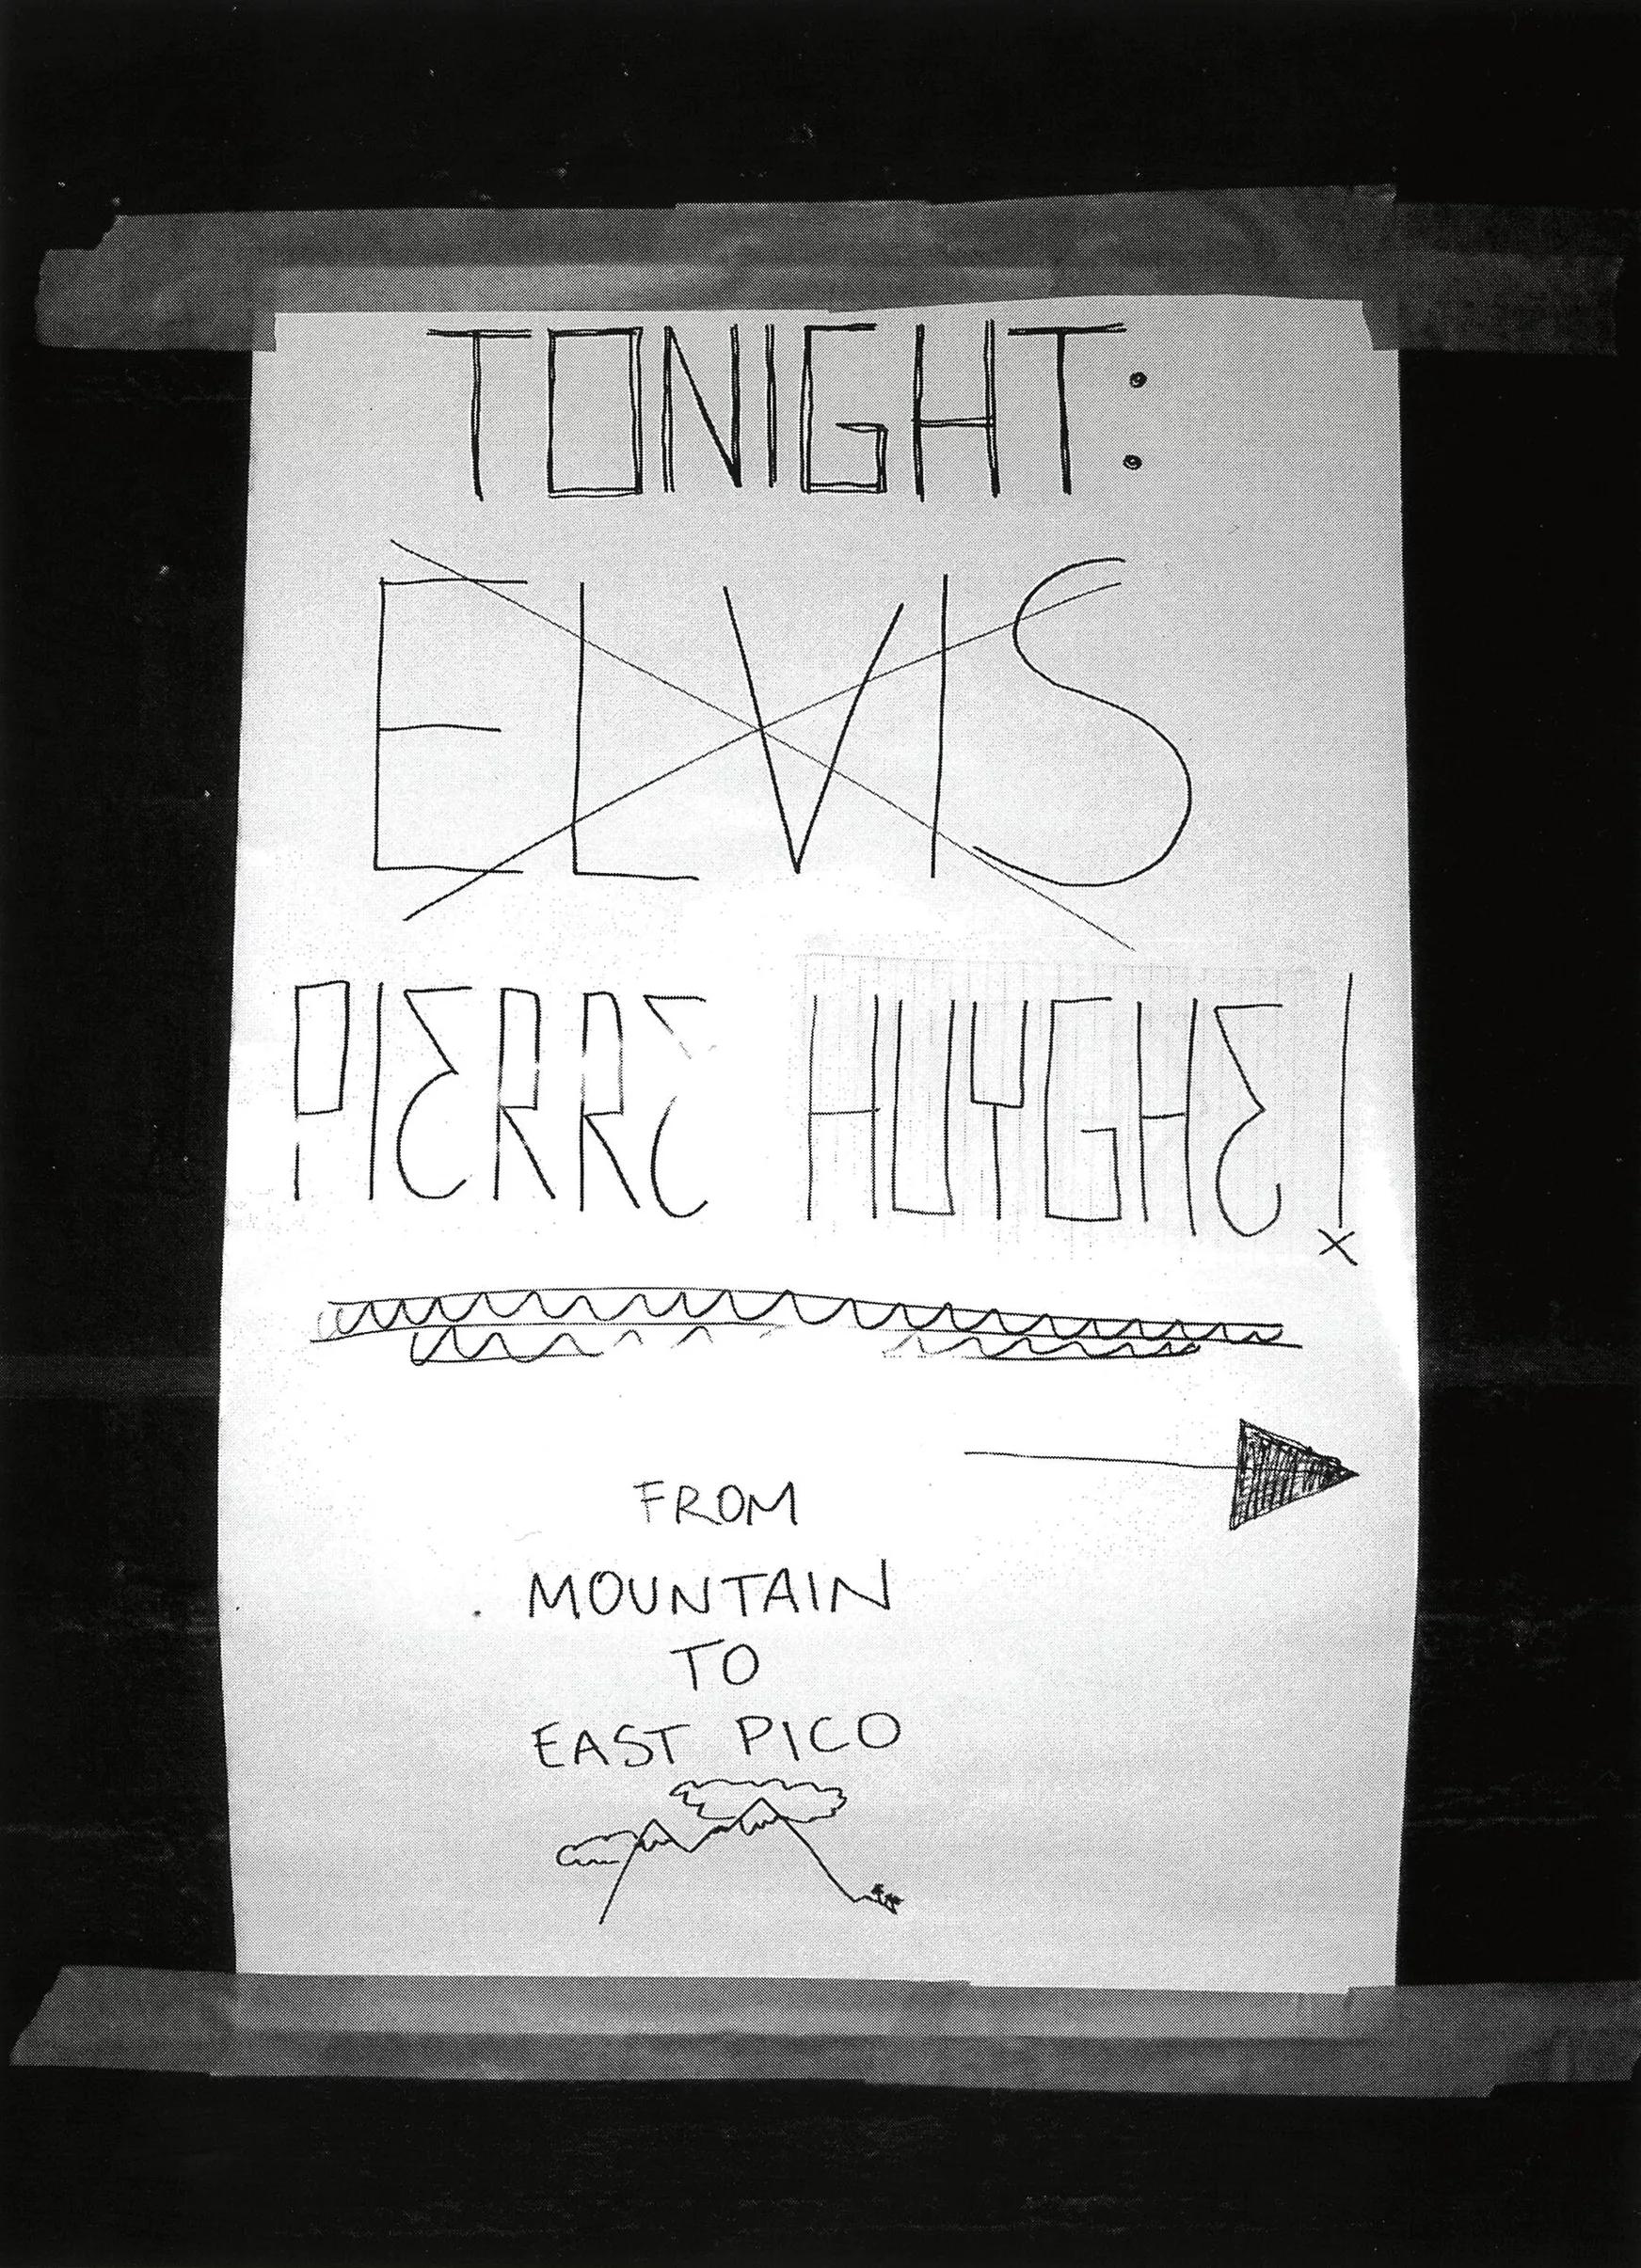 TONIGHT:
ELVIS
PIERRE HUYGHE!
FROM
MOUNTAIN
TO
EAST PICO